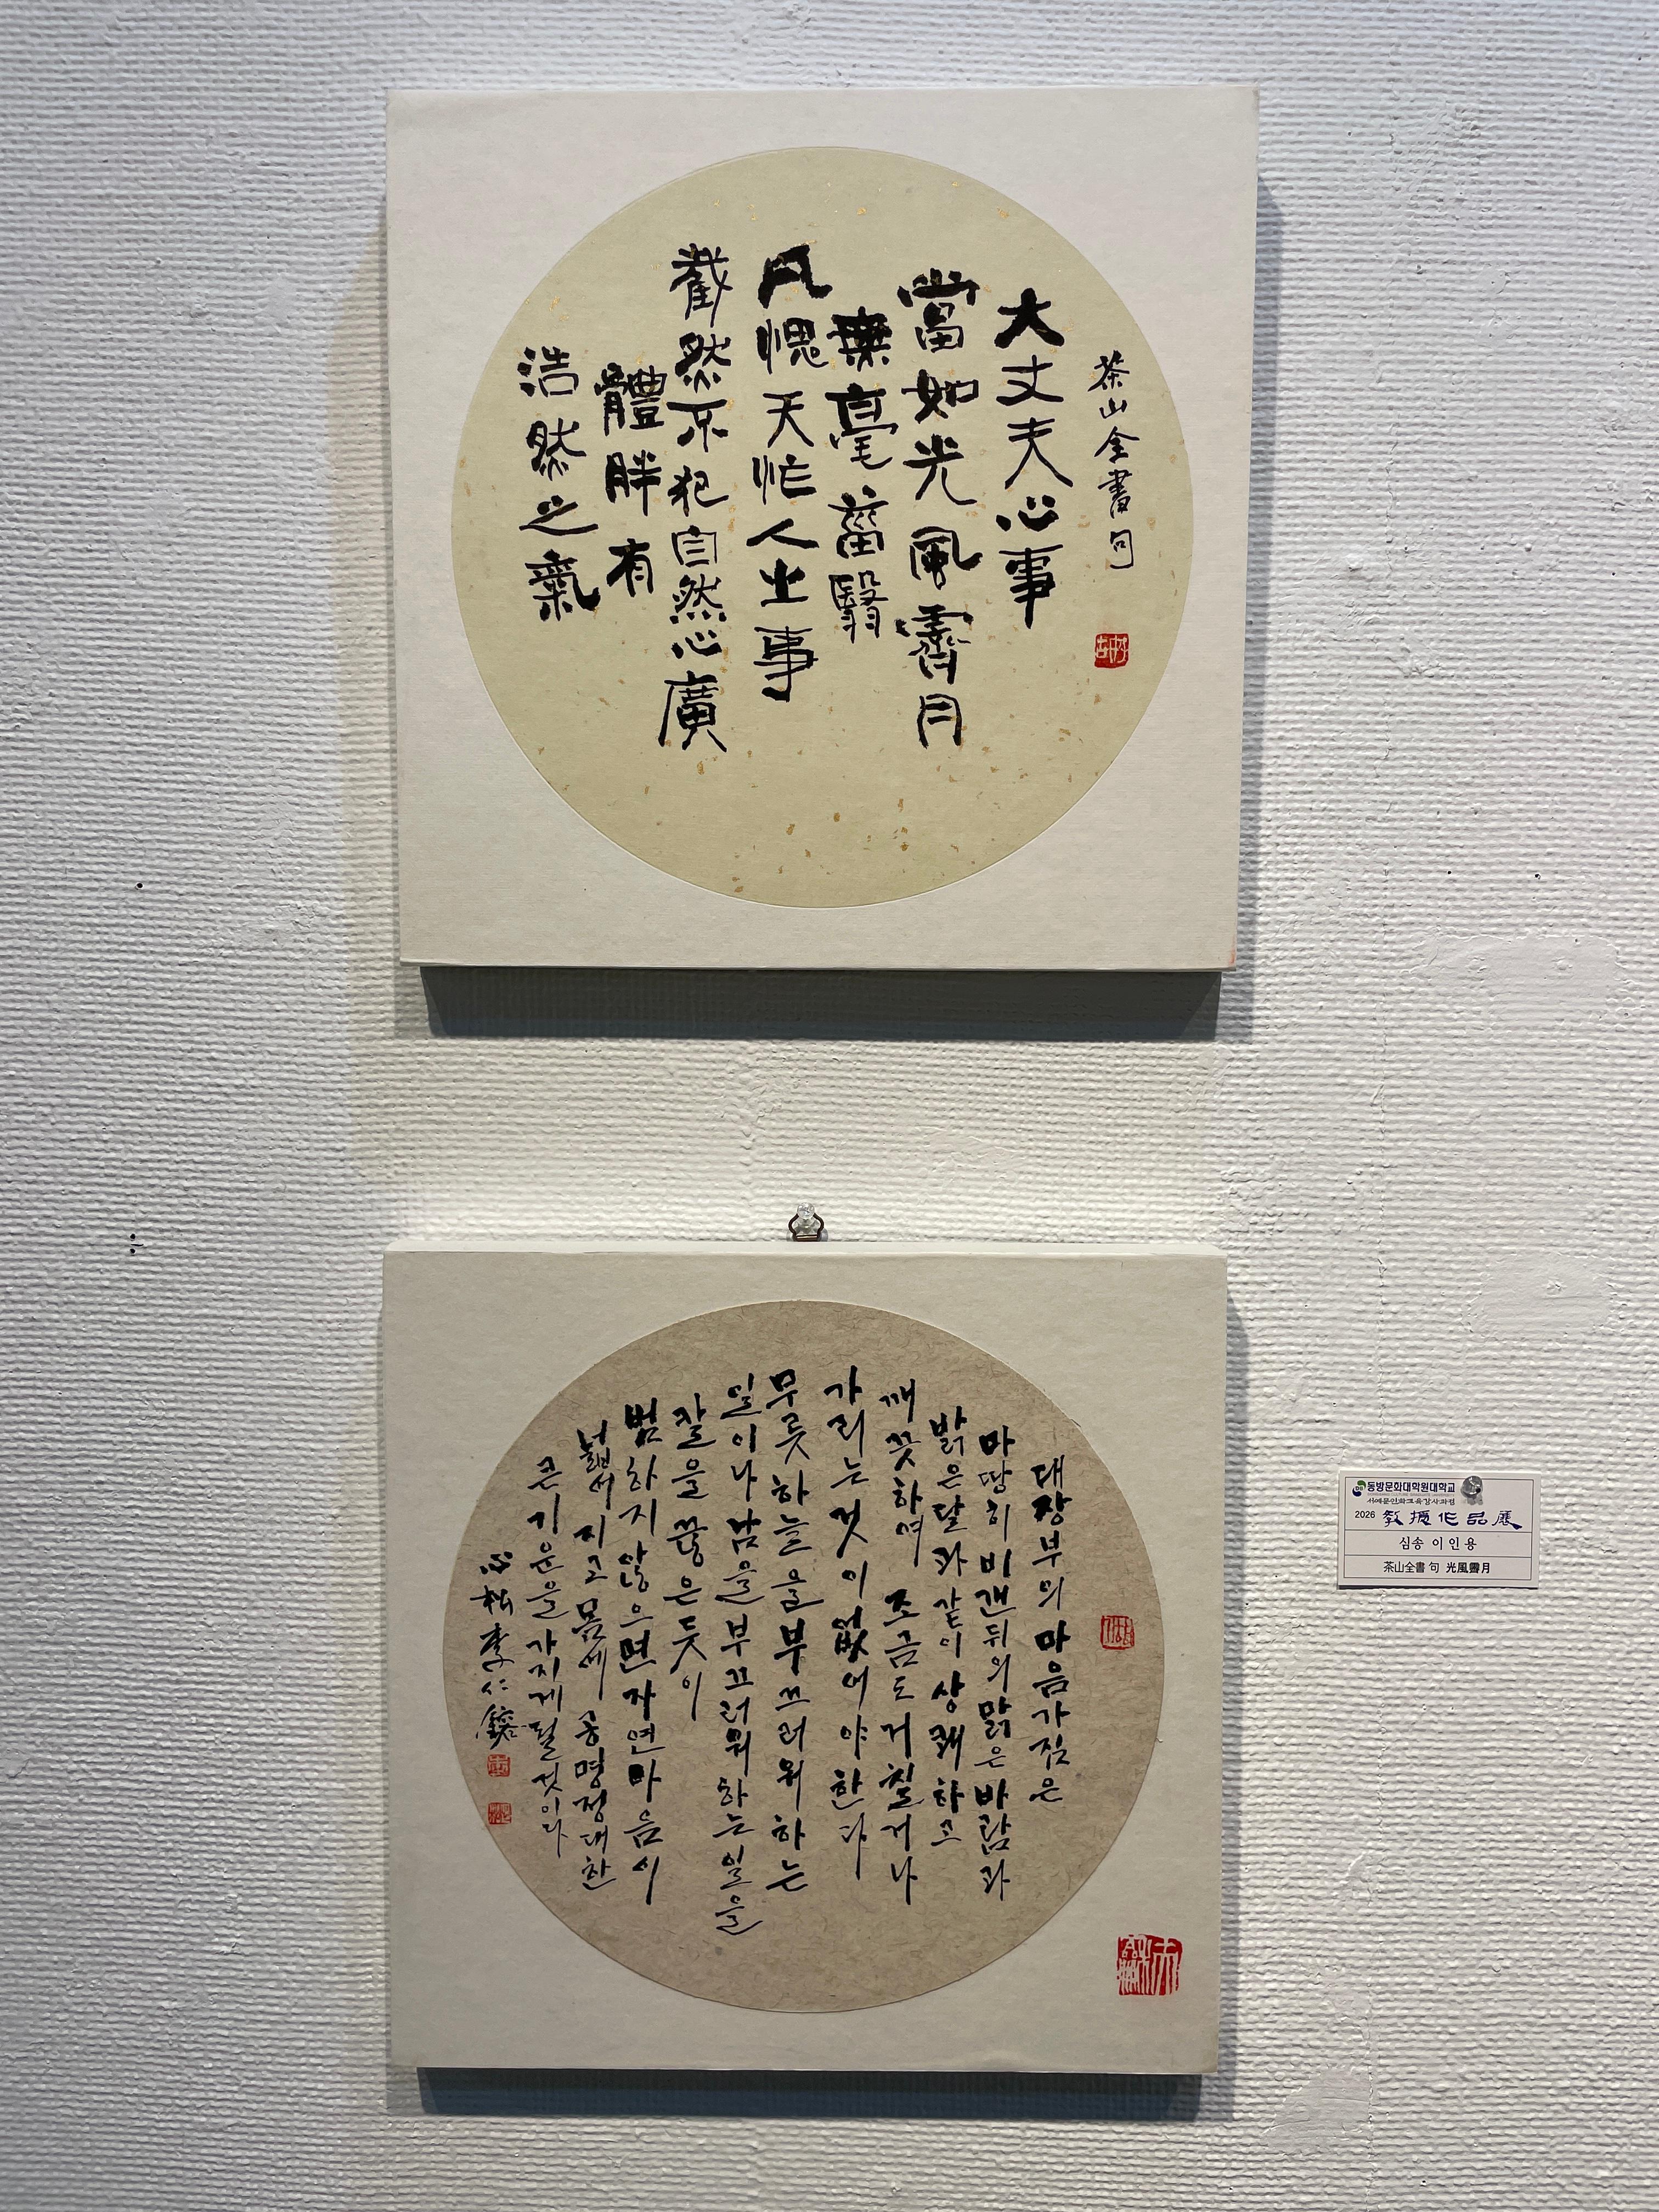 茶山全書句
大丈夫心事
當如光風霽月
無毫菑翳
凡愧天怍人之事
截然不犯自然心廣
體胖有
浩然之氣
대장부의 마음가짐은
마땅히 비갠뒤의 맑은 바람과
밝은달과 같이 상쾌하고
깨끗하며 조금도 거칠거나
가리는것이 없어야 한다
무릇 하늘을 부끄러워하는
일이나 남을 부끄러워하는 일을
칼을 끊은듯이
범하지 않으면 자연마음이
넓어지고 몸에 공명정대한
큰기운을 가지게될것이다
心松 李仁鎔
동방문화대학원대학교
서예문인화교육강사과정
2026 敎授作品展
심송 이인용
茶山全書 句 光風霽月